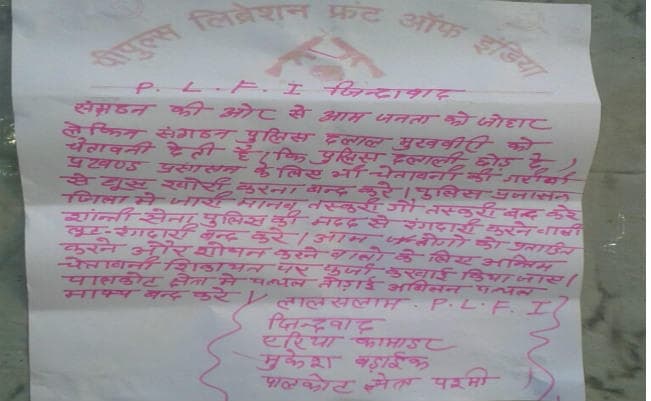 पीपुल्स लिब्रेशन फ्रंट ऑफ इंडिया
P. L. F. I जिन्दावाद
संगठन की ओर से आम जनता को जोहार
लेकिन संगठन पुलिस दलाल मुखवीरी को
चेतावनी देती है, कि पुलिस दलाली छोड़ दे,
प्रखण्ड प्रसासन के लिए भी चेतावनी की गरीबों
से घूस खोरी करना बन्द करे। पुलिस प्रजासन
जिला मे जारी मानव तस्करी गौ तस्करी बन्द करे
शान्ती सेना पुलिस की मदद से रंगदारी करने वाली
लूट-रंगदारी बन्द करे। आम लोगों को प्रताड़ित
करने और शोषन करने वालो के लिए अन्तिम
चेतावनी शिकायत पर कर्जा करवाई किया जाए।
पालकोट क्षेत्र मे पत्थल तोड़ाई अभियन पत्थल
माफ्य बन्द करे
लालसलाम. P. L. F. I
जिन्दवाद
एरिया कामाडर
मुकेश बड़ाईक
पालकोट क्षेत्र पश्मी